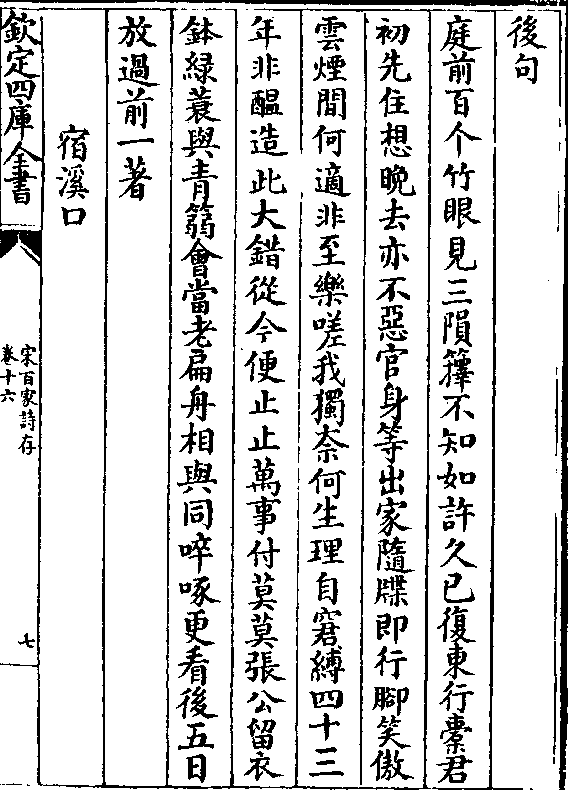 後句
庭前百个竹眼見三隕籜不知如許久已復東行橐君
初先住想晚去亦不惡官身等出家隨牒即行腳笑傲
雲煙間何適非至樂嗟我獨奈何生理自窘縛四十三
年非醖造此大錯從今便止止萬事付莫莫張公留衣
鉢緑蓑與青篛會當老扁舟相與同啐啄更看後五日
放過前一著
宿溪口
欽定四庫全書
宋百家詩存
卷十六
七